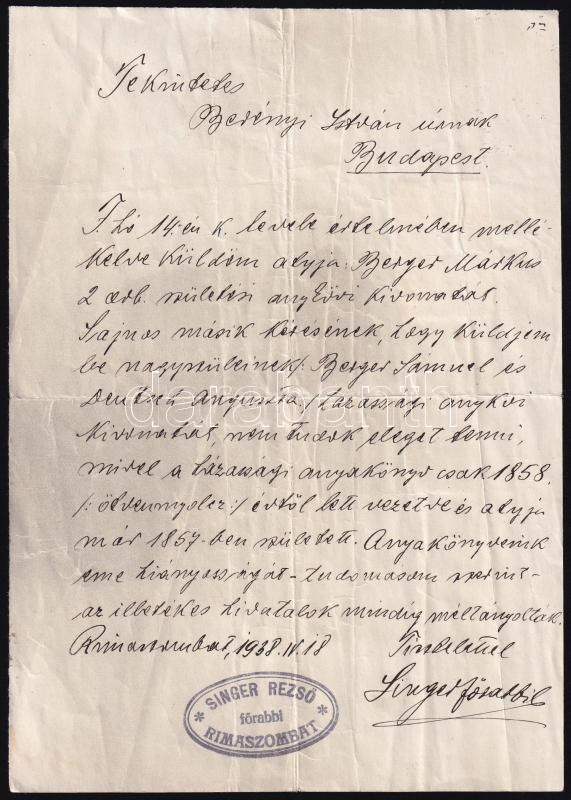 ב״ה
Tekintetes
Berényi István úrnak
Budapest.
F. hó 14.-én k. levele értelmében mellé-
kelve küldöm atyja: Berger Márkus
2 drb. születési anykövi kivonatát.
Sajnos másik kérésének, hogy küldjem
be nagyszüleinek /: Berger Sámuel és
Deutsch Auguszta / házassági anykvi
kivonatát, nem tudok eleget tenni,
mivel a házassági anyakönyv csak 1858.
/: ötvennyolcz :/ évtől lett vezetve és atyja
már 1857-ben született. Anyakönyveink
eme hiányosságát - tudomásom szerint -
az illetékes hivatalok mindig méltányolták.
Rimaszombat, 1938. IV. 18
Tisztelettel
Singer főrabbi
SINGER REZSŐ
főrabbi
RIMASZOMBAT
darabanth